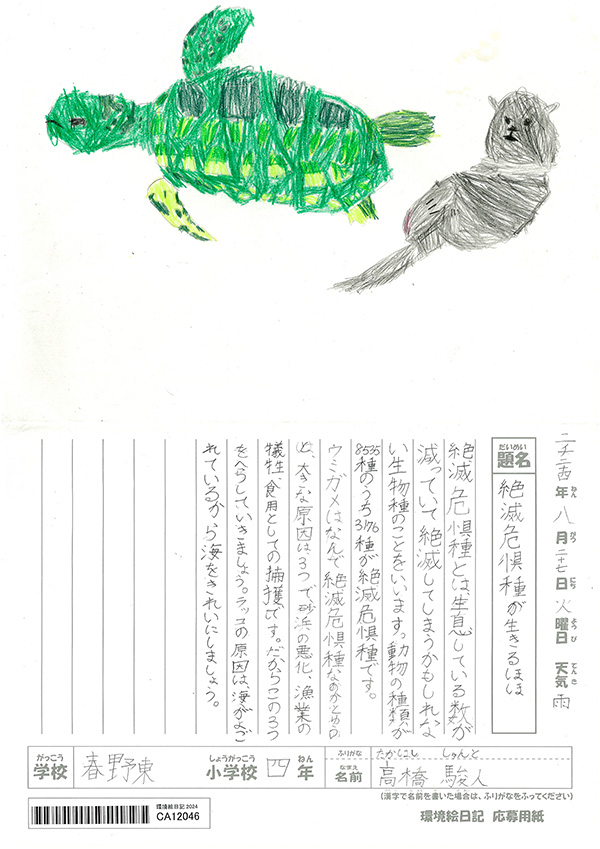 二千二四年八月二十七日火曜日天気雨
ねんがつにちようびてんき
だいめい
題名
絶滅危惧種が生きるほほ
絶滅危惧種とは生息している数が
減っていて絶滅してしまうかもしれな
い生物種のことをいいます。動物の種類が
8535種のうち3176種が絶滅危惧種です。
ウミガメはなんで絶滅危惧種なのかという
と、大きな原因は3つで砂浜の悪化、漁業の
犠牲、食用としての捕獲です。だからこの3つ
をへらしていきましょう。ラッコの原因は、海がよご
れているから海をきれいにしましょう。
がっこう
学校
春野東
しょうがっこう
小学校
四
ねん
年
ふりがな
たかはし しゅんと
なまえ
名前
高橋 駿人
(漢字で名前を書いた場合は、ふりがなをふってください)
環境絵日記 2024
CA12046
環境絵日記 応募用紙